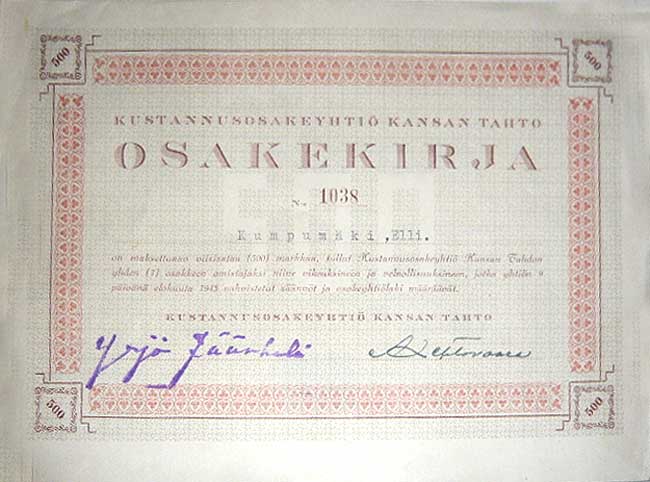 500
500
KUSTANNUSOSAKEYHTIÖ KANSAN TAHTO
OSAKEKIRJA
N:o 1038
Kumpumäki, Elli.
on maksettuaan viisisataa (500) markkaa, tullut Kustannusosakeyhtiö Kansan Tahdon
yhden (1) osakkeen omistajaksi niine oikeuksineen ja velvollisuuksineen, jotka yhtiön 9
päivänä elokuuta 1945 vahvistetut säännöt ja osakeyhtiölaki määräävät.
KUSTANNUSOSAKEYHTIÖ KANSAN TAHTO
Yrjö
500
500